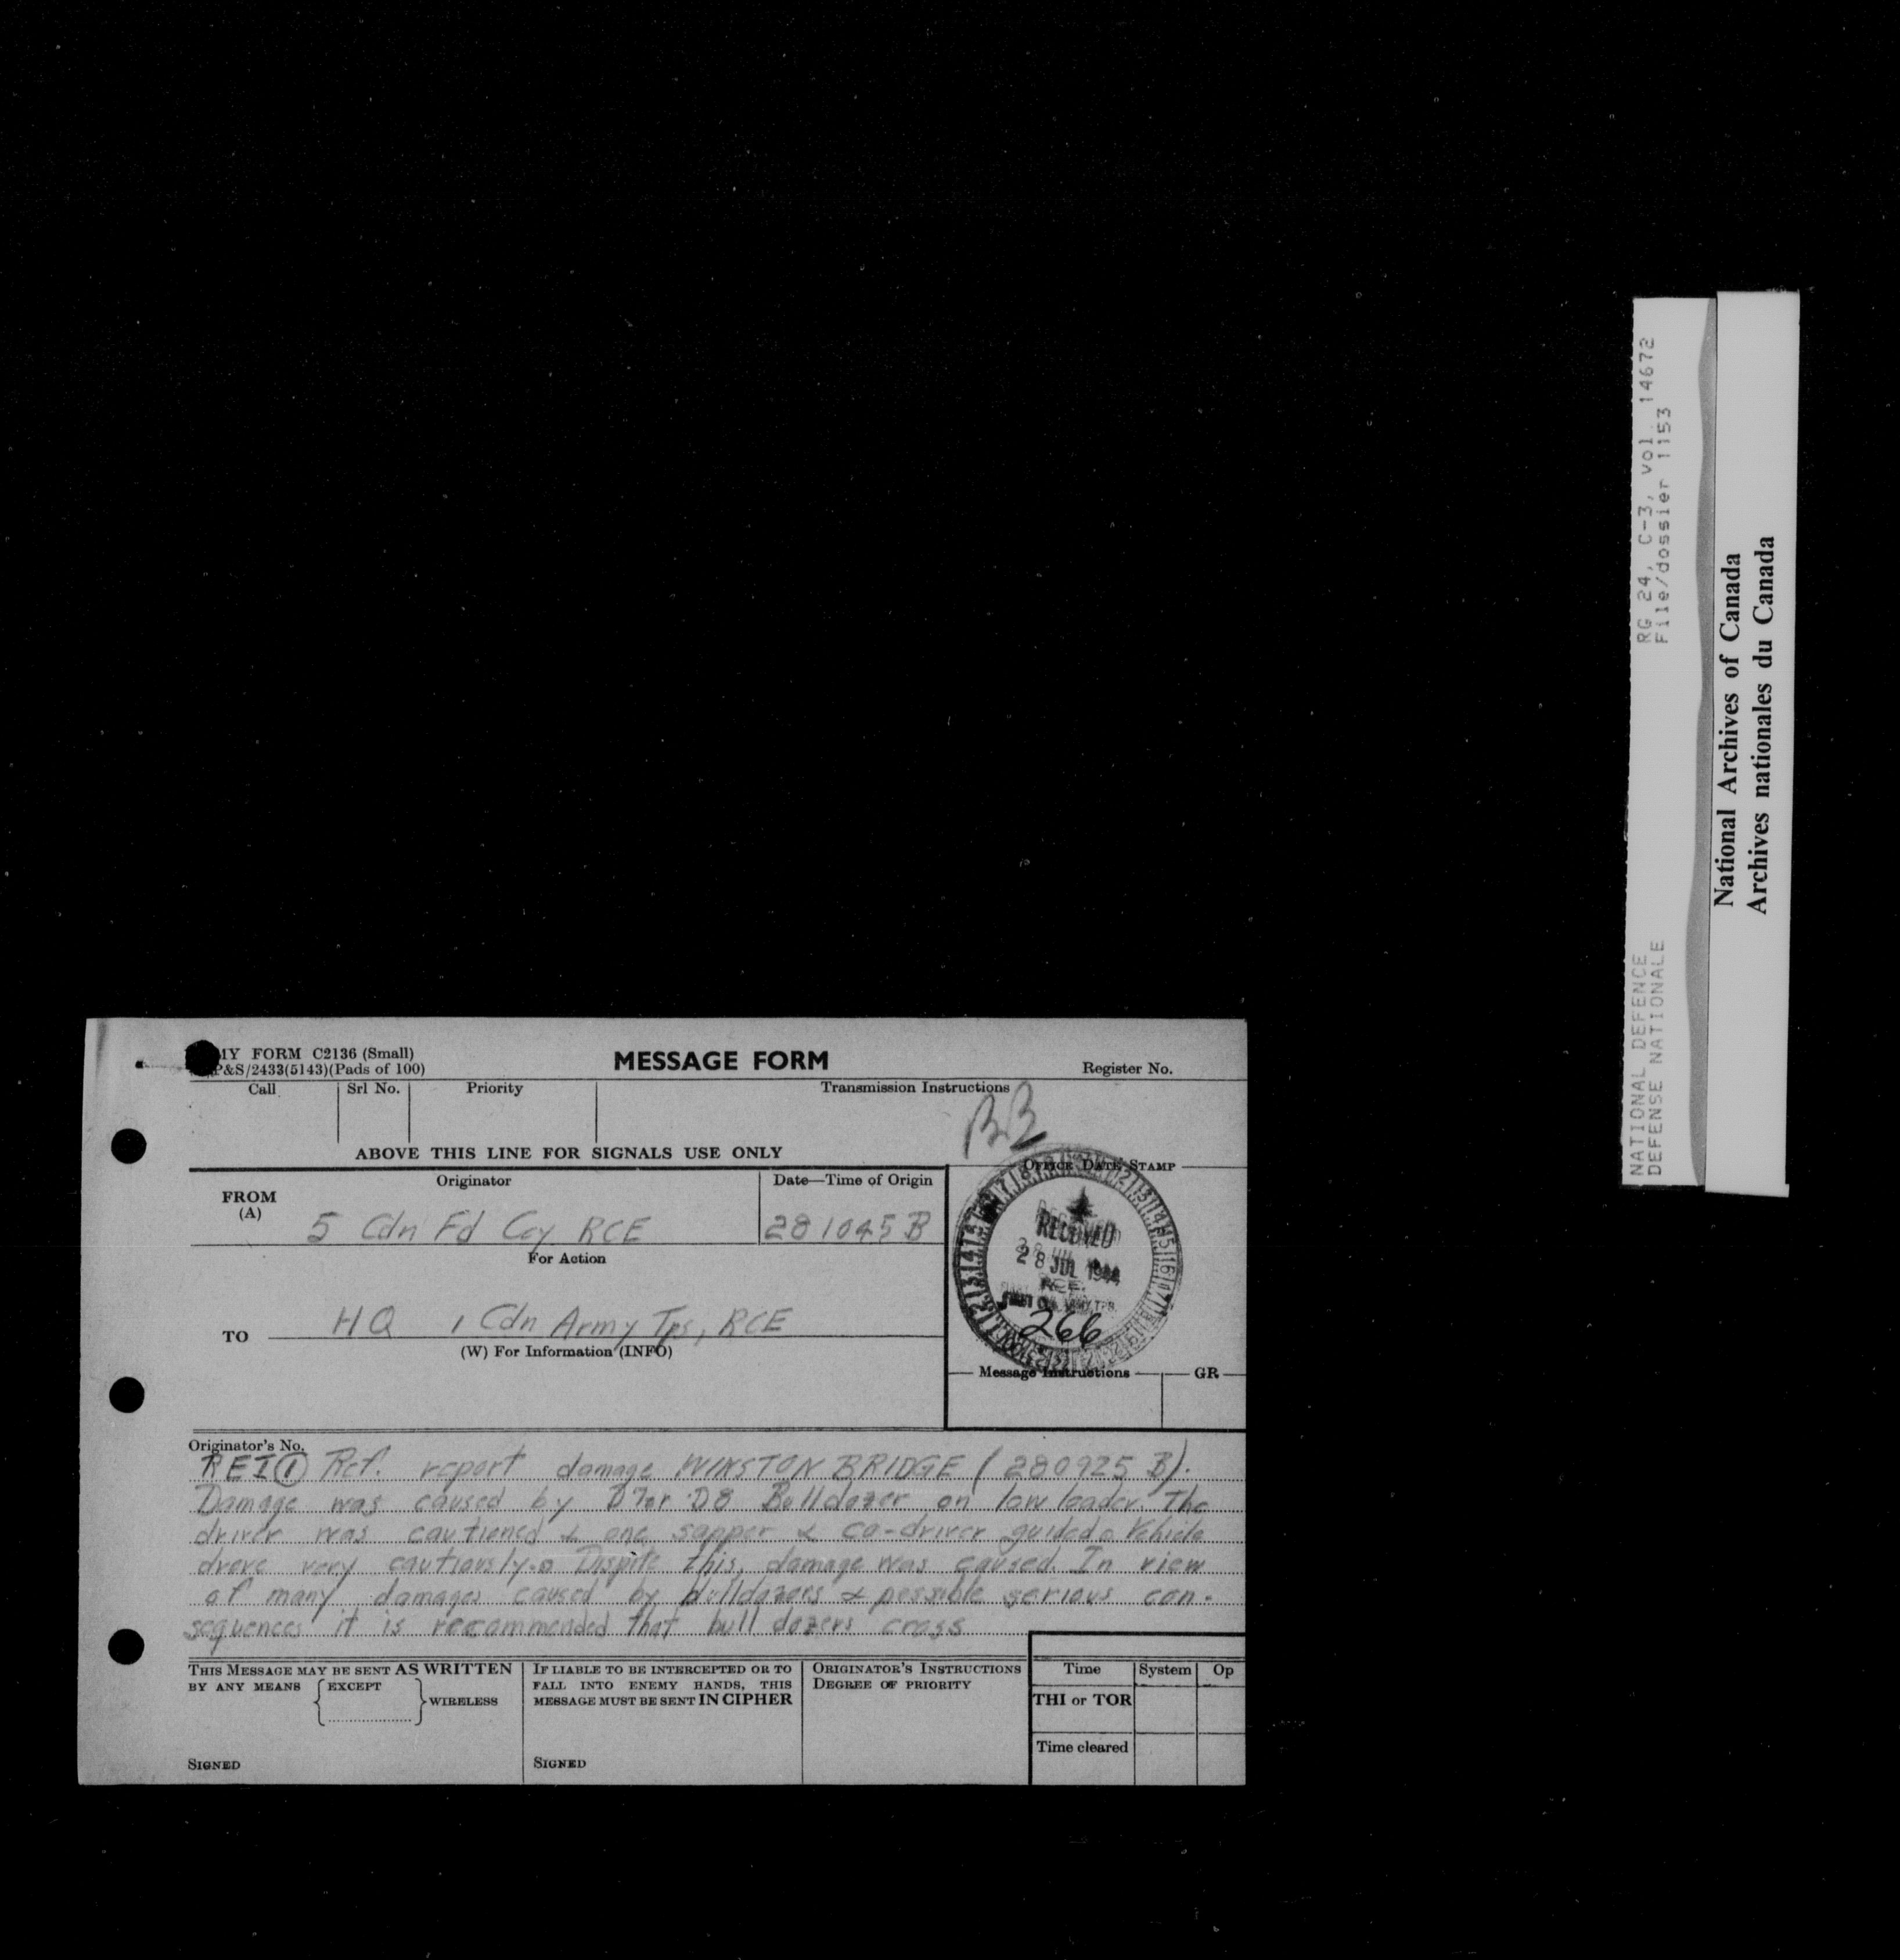 ARMY FORM C2136 (Small)
P&S/2433(5143)(Pads of 100)
MESSAGE FORM
Register No.
Call Srl No. Priority Transmission Instructions
BB
ABOVE THIS LINE FOR SIGNALS USE ONLY
OFFICE DATE STAMP
FROM
(A)
Originator
Date—Time of Origin
5 Cdn Fd Coy RCE
281045 B
RECEIVED
28 JUL 1944
RCE.
266
For Action
TO
HQ 1 Cdn Army Tps, RCE
(W) For Information (INFO)
Message Instructions GR
Originator's No.
REI ① Ref. report damage WINSTON BRIDGE (280925 B).
Damage was caused by D7 or D8 Bulldozer on low loader. The
driver was cautioned & one sapper & co-driver guided. Vehicle
drove very cautiously. Dispite this, damage was caused. In view
of many damages caused by bulldozers & possible serious con-
sequences it is recommended that bull dozers cross
THIS MESSAGE MAY BE SENT AS WRITTEN
BY ANY MEANS EXCEPT WIRELESS
SIGNED
IF LIABLE TO BE INTERCEPTED OR TO
FALL INTO ENEMY HANDS, THIS
MESSAGE MUST BE SENT IN CIPHER
SIGNED
ORIGINATOR'S INSTRUCTIONS
DEGREE OF PRIORITY
Time System Op
THI or TOR
Time cleared
NATIONAL DEFENCE RG 24, C-3, vol 14672
DEFENSE NATIONALE File/dossier 1153
National Archives of Canada
Archives nationales du Canada